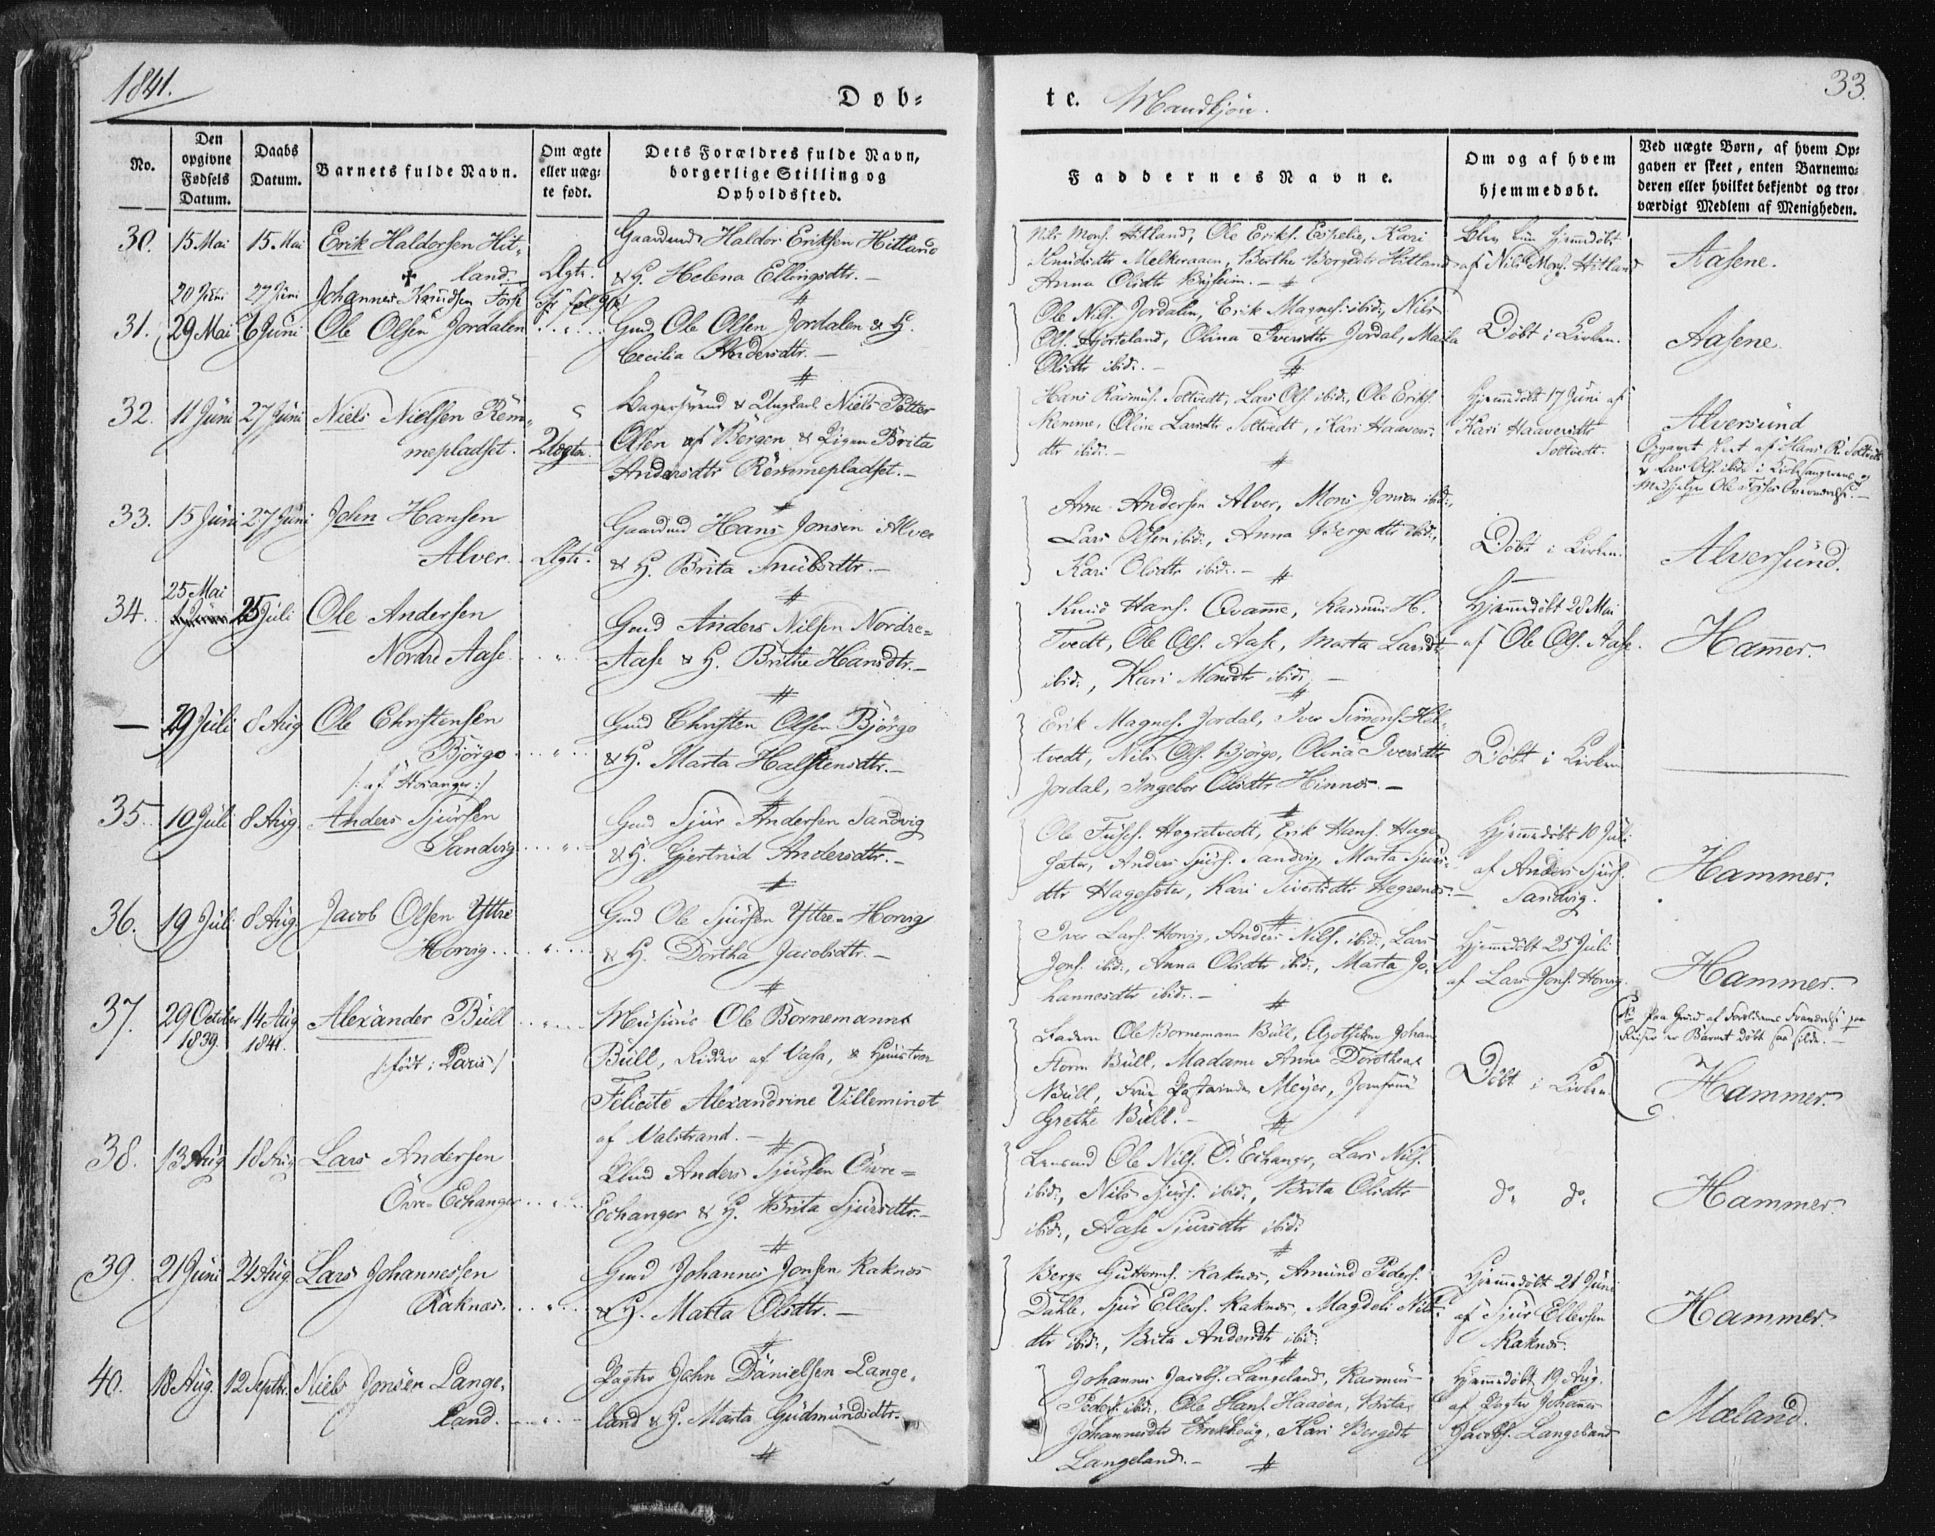 1841.
Døb-
te. Mandkjön.
33.
No.
Den opgivne Fødsels Datum.
Daabs Datum.
Barnets fulde Navn.
Om ægte eller uægte født.
Dets Forældres fulde Navn, borgerlige Stilling og Opholdssted.
Faddernes Navne.
Om og af hvem hjemmedøbt.
Ved uægte Børn, af hvem Opgaven er skeet, enten Barnemoderen eller hvilket bekjendt og troværdigt Medlem af Menigheden.
30. 15 Mai 15 Mai Erik Haldorsen Hit-
land Ægte.
Gaardmd Haldor Eriksen Hitland
& H. Helena Ellingsdtr. —
Nils Mons. Hitland, Ole Eriks. Espelie, Kari
Knudsdtr Melkeraaen, Berthe Borgesdtr Hitland
Anna Olsdtr Byseim. —
Blev kun hjemmedöbt
af Nils Mons. Hitland
Aasene.
20 Juni 27 Juni Johannes Knudsen Fosse
31. 29 Mai 6 Juni Ole Olsen Jordalen
Gmd Ole Olsen Jordalen & H.
Cecilia Andersdtr. —
Ole Nils. Jordalen, Erik Magnes. ibid., Nils
Ols. Hjorteland, Olina Iversdtr Jordal, Marta
Olsdtr ibid. —
Döbt i Kirken.
Aasene.
32. 11 Juni 27 Juni Niels Nielsen Rem-
mepladset. Uægte.
Bagersvend & Ungkarl Niels Potter
Olsen af Bergen & Pigen Brita
Andersdtr Remmepladset. —
Hans Rasmus. Toltvedt, Lars Ols. ibid., Ole Eriks.
Remme, Oline Larsdtr Toltvedt, Kari Haavers-
dtr ibid. —
Hjemmedöbt 17 Juni af
Kari Haaversdtr
Toltvedt.
Alversund
Opgavet skeet af Hans R. Toltvedt
& Lars Ols. ibid. i Kirkesangerens og
Medhjelper Ole Overværelse. —
33. 15 Juni 27 Juni John Hansen
Alver. Ægte.
Gaardmd Hans Jonsen Alver
& H. Brita Knudsdtr. —
Arne Andersen Alver, Mons Jonsen ibid.,
Lars Olsen ibid., Anna Bergesdtr ibid.,
Kari Olsdtr ibid. —
Döbt i Kirken.
Alversund.
34. 25 Mai 25 Juli Ole Andersen
Nordre Aase
Gmd Anders Nilsen Nordre-
Aase & H. Brithe Hansdtr. —
Knud Hans. Qvamme, Rasmus H.
Tvedt, Ole Ols. Aase, Marta Larsdtr
ibid., Kari Monsdtr ibid. —
Hjemmedöbt 28 Mai
af Ole Ols. Aase.
Hammer.
— 29 Juli 8 Aug Ole Christensen
Björgo
/: af Hosanger :/
Gmd Christen Olsen Björgo
& H. Marta Halstensdtr. —
Erik Magnes. Jordal, Iver Simons. Hol-
tvedt, Nils Ols. Björgo, Olina Iversdtr
Jordal, Ingebor Olsdtr Hinnes. —
Döbt i Kirken
35. 10 Juli 8 Aug Anders Sjursen
Sandvig
Gmd Sjur Andersen Sandvig
& H. Gjertrud Andersdtr. —
Ole Hogretvedt, Erik Hans. Hage-
sæter, Anders Sjurs. Sandvig, Marta Sjurs-
dtr Hagesæter, Kari Sivertsdtr Hegrenæs. —
Hjemmedöbt 10 Juli
af Anders Sjurs.
Sandvig.
Hammer.
36. 19 Juli 8 Aug Jacob Olsen Ystre
Horvig
Gmd Ole Sjursen Ystre-Horvig
& H. Dortha Jacobsdtr. —
Iver Lars. Horvig, Anders Nils. ibid., Lars
Jons. ibid., Anna Olsdtr ibid., Marta Jo-
hannesdtr ibid. —
Hjemmedöbt 25 Juli
af Lars Jons. Horvig.
Hammer.
37. 29 October 1839. 14 Aug 1841. Alexander Bull
/: födt i Paris :/
Musicus Ole Bornemann
Bull, Ridder af Vasa, & Hustru
Felicite Alexandrine Villeminot
af Valstrand. —
Faderen Ole Bornemann Bull, Apotheker Johan
Storm Bull, Madame Anne Dorothea
Bull, Frue Meyer, Jomfrue
Grethe Bull. —
Döbt i Kirken
NB paa Grund af Forældrenes Fraværelse paa
Reiser er Barnet döbt saa silde. —
Hammer.
38. 13 Aug 18 Aug Lars Andersen
Övre-Echanger
Gmd Anders Sjursen Övre-
Echanger & H. Brita Sjursdtr. —
Lensmd Ole Nils. Ö. Echanger, Lars Nils.
ibid., Nils Sjurs. ibid., Brita Olsdtr
ibid., Aase Sjursdtr ibid.
do. do.
Hammer.
39. 21 Juni 24 Aug. Lars Johannessen
Raknæs.
Gmd Johannes Jonsen Raknæs
& H. Marta Olsdtr. —
Berge Guttorms. Raknæs, Amund Peders.
Dahle, Sjur Ellers. Raknæs, Magdeli Nils-
dtr ibid., Brita Andersdtr ibid.
Hjemmedöbt 21 Juni
af Sjur Ellersen
Raknæs.
Hammer.
40. 18 Aug. 12 Septbr. Niels Jonsen Lange-
land.
Pagter John Danielsen Lange-
land & H. Marta Gudmundsdtr.
Johannes Jacobs. Langeland, Rasmus
Peders. ibid., Ole Hans. Haaöen, Brita
Johannesdtr , Kari Bergesdtr
Langeland. —
Hjemmedöbt 19 Aug.
af Pagter Johannes
Jacobs. Langeland
Mæland.